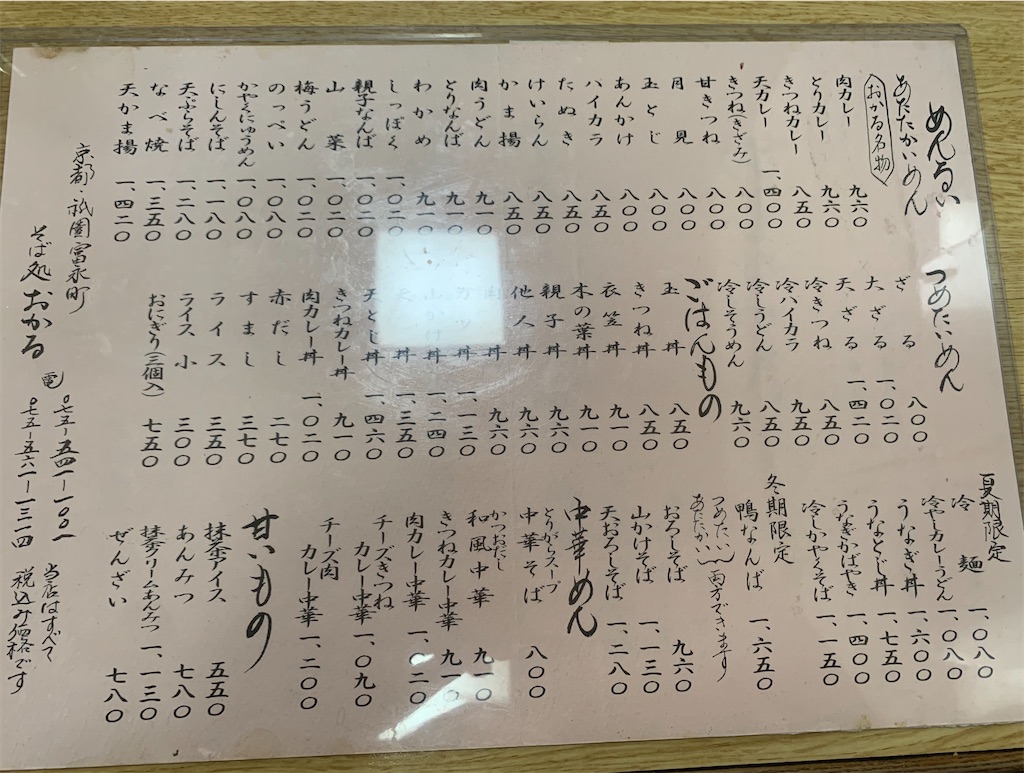 めんるい
あたたかいめん
おかる名物
肉カレー 九六〇
とりカレー 九六〇
きつねカレー 八五〇
天カレー 一、四〇〇
きつね(きざみ) 八〇〇
甘きつね 八〇〇
月見 八〇〇
玉とじ 八〇〇
あんかけ 八〇〇
ハイカラ 八五〇
たぬき 八五〇
けいらん 八五〇
かま揚 八五〇
肉うどん 九一〇
とりなんば 九一〇
わかめ 九一〇
しっぽく 一、〇二〇
親子なんば 一、〇二〇
山菜 一、〇二〇
梅うどん 一、〇二〇
のっぺい 一、〇八〇
かやくにゅうめん 一、〇八〇
にしんそば 一、一八〇
天ぷらそば 一、二八〇
なべ焼 一、三五〇
天かま揚 一、四二〇
つめたいめん
ざる 八〇〇
大ざる 一、〇二〇
天ざる 一、四二〇
冷きつね 八五〇
冷ハイカラ 九五〇
冷しうどん 八五〇
冷しそうめん 九六〇
ごはんもの
玉丼 八五〇
きつね丼 八五〇
衣笠丼 九一〇
木の葉丼 九一〇
親子丼 九六〇
他人丼 九六〇
肉丼 九六〇
カツ丼 一、一三〇
山かけ丼 一、二四〇
天丼 一、三五〇
天とじ丼 一、四六〇
きつねカレー丼 九一〇
肉カレー丼 一、〇二〇
赤だし 二七〇
すまし 三七〇
ライス 三五〇
ライス小 三〇〇
おにぎり(三個入) 七五〇
夏期限定
冷麺 一、〇八〇
冷やしカレーうどん 一、〇八〇
うなぎ丼 一、六〇〇
うなとじ丼 一、七五〇
うなぎかばやき 一、四〇〇
冷しかやくそば 一、一五〇
冬期限定
鴨なんば 一、六五〇
つめたい
あたたかい
両方できます
おろしそば 九六〇
山かけそば 一、一三〇
天おろしそば 一、二八〇
中華めん
とりがらスープ
中華そば 八〇〇
かつおだし
和風中華 九一〇
きつねカレー中華 九一〇
肉カレー中華 一、〇二〇
チーズきつね
カレー中華 一、〇九〇
チーズ肉
カレー中華 一、二〇〇
甘いもの
抹茶アイス 五五〇
あんみつ 七八〇
抹茶クリームあんみつ 一、一三〇
ぜんざい 七八〇
京都 祇園富永町
そば処おかる
電 〇七五-五四一-一〇〇一
〇七五-五六一-一三一四
当店はすべて
税込み価格です